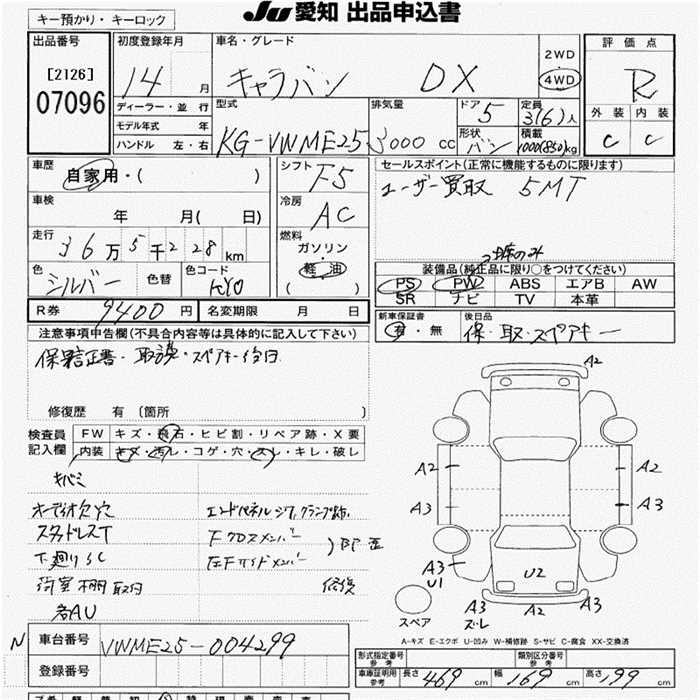 JU 愛知 出品申込書
キー預かり・キーロック
出品番号
[2126]
07096
初度登録年月
14 月
車名・グレード
キャラバン DX
2WD
4WD
評価点
R
外装 内装
C C
ディーラー・並行
モデル年式 年
ハンドル 左・右
型式
KG-VWME25
排気量
3000 cc
ドア
5
形状
バン
定員
3(6)人
積載
1000(850)kg
車歴
自家用・( )
車検
年 月( 日)
走行
36万5千228km
色
シルバー
色替
色コード
KY0
シフト
F5
冷房
AC
燃料
ガソリン・
軽油
( )
セールスポイント(正常に機能するものに限ります)
ユーザー買取 5MT
装備品(純正品に限り○をつけてください)
PS PW ABS エアB AW
SR ナビ TV 本革
R券 9400 円
名変期限 月 日
新車保証書
有・無
後日品
保・取・スペアキー
注意事項申告欄(不具合内容等は具体的に記入して下さい)
保証書・取説・スペアキー後日
修復歴 有 (箇所 )
検査員
記入欄
FW キズ・飛石・ヒビ割・リペア跡・X要
内装 キズ・汚レ・コゲ・穴・スレ・キレ・破レ
キバミ
オーディオ欠穴
スタッドレスT
下廻りSC
荷室棚取付
エンドパネルシワ、クランプ跡
Fクロスメンバー
左Fサイドメンバー
修復
A2
A2 A2
A3 A3
A3
U1
U2
A3
ズレ
A2
A3
スペア
A-キズ E-エクボ U-凹み W-補修跡 S-サビ C-腐食 XX-交換済
N
車台番号
VWME25-004299
登録番号
形式指定番号
参考
類別区分番号
参考
車庫証明用
参考
長さ 469 cm 幅 169 cm 高さ 199 cm